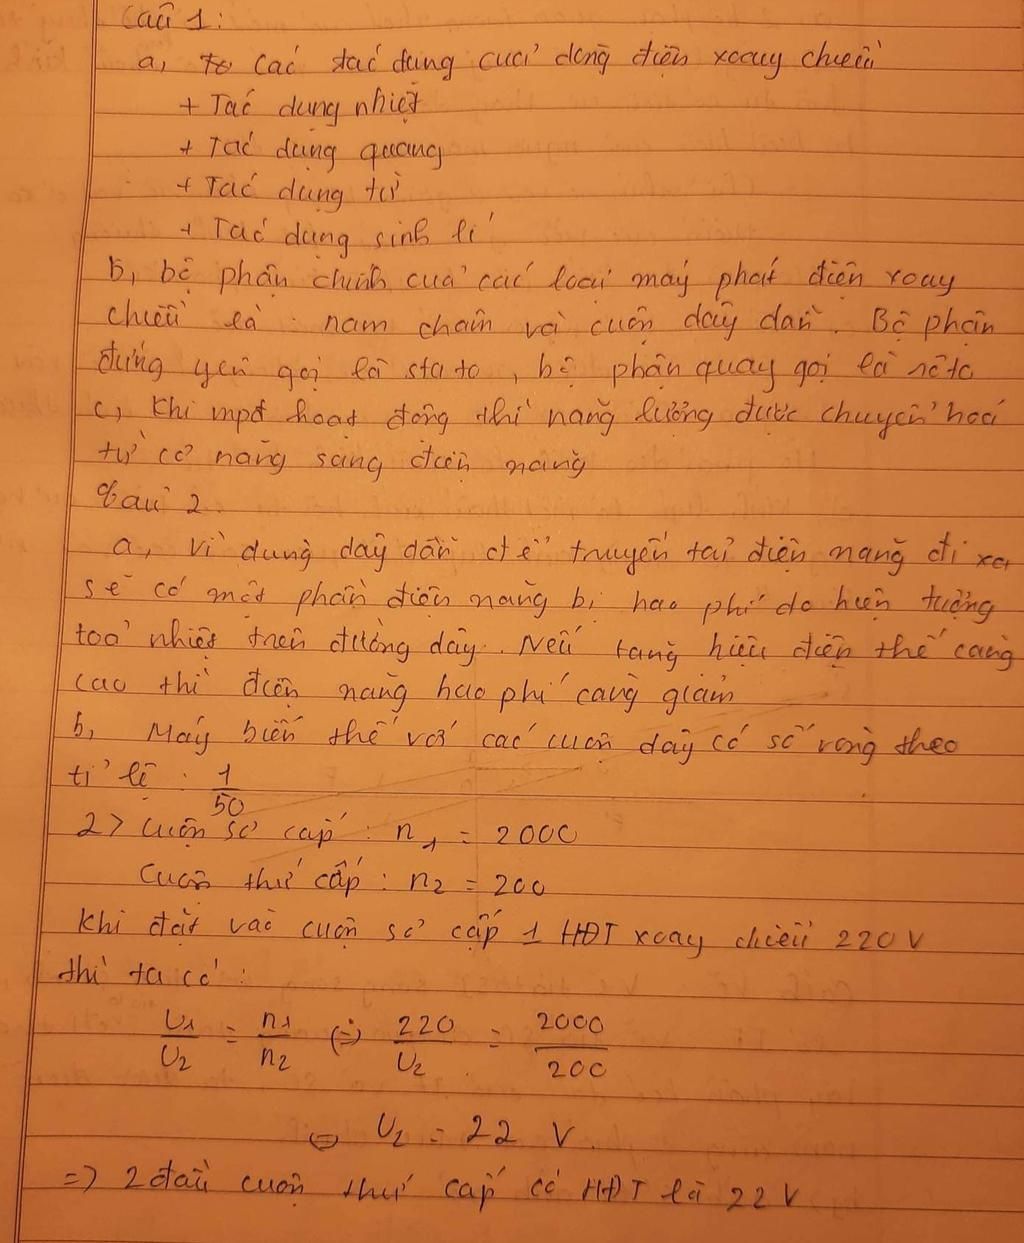 Câu 1:
a, to Các tác dụng của dòng điện xoay chiều
+ Tác dụng nhiệt
+ Tác dụng quang
+ Tác dụng từ
+ Tác dụng sinh lí
b, bộ phận chính của các loại máy phát điện xoay
chiều là : nam châm và cuộn dây dẫn. Bộ phận
đứng yên gọi là stato, bộ phận quay gọi là rôto
c, Khi mpđ hoạt động thì năng lượng được chuyển hoá
từ cơ năng sang điện năng
Câu 2
a, Vì dùng dây dẫn để truyền tải điện năng đi xa
sẽ có một phần điện năng bị hao phí do hiện tượng
toả nhiệt trên đường dây. Nếu tăng hiệu điện thế càng
cao thì điện năng hao phí càng giảm
b, Máy biến thế với các cuộn dây có số vòng theo
tỉ lệ : 1/50
2> Cuộn sơ cấp : n₁ = 2000
Cuộn thứ cấp : n₂ = 200
Khi đặt vào cuộn sơ cấp 1 HĐT xoay chiều 220 V
thì ta có :
U₁/U₂ = n₁/n₂ (=) 220/U₂ = 2000/200
⇔ U₂ = 22 V
=> 2 đầu cuộn thứ cấp có HĐT là 22 V